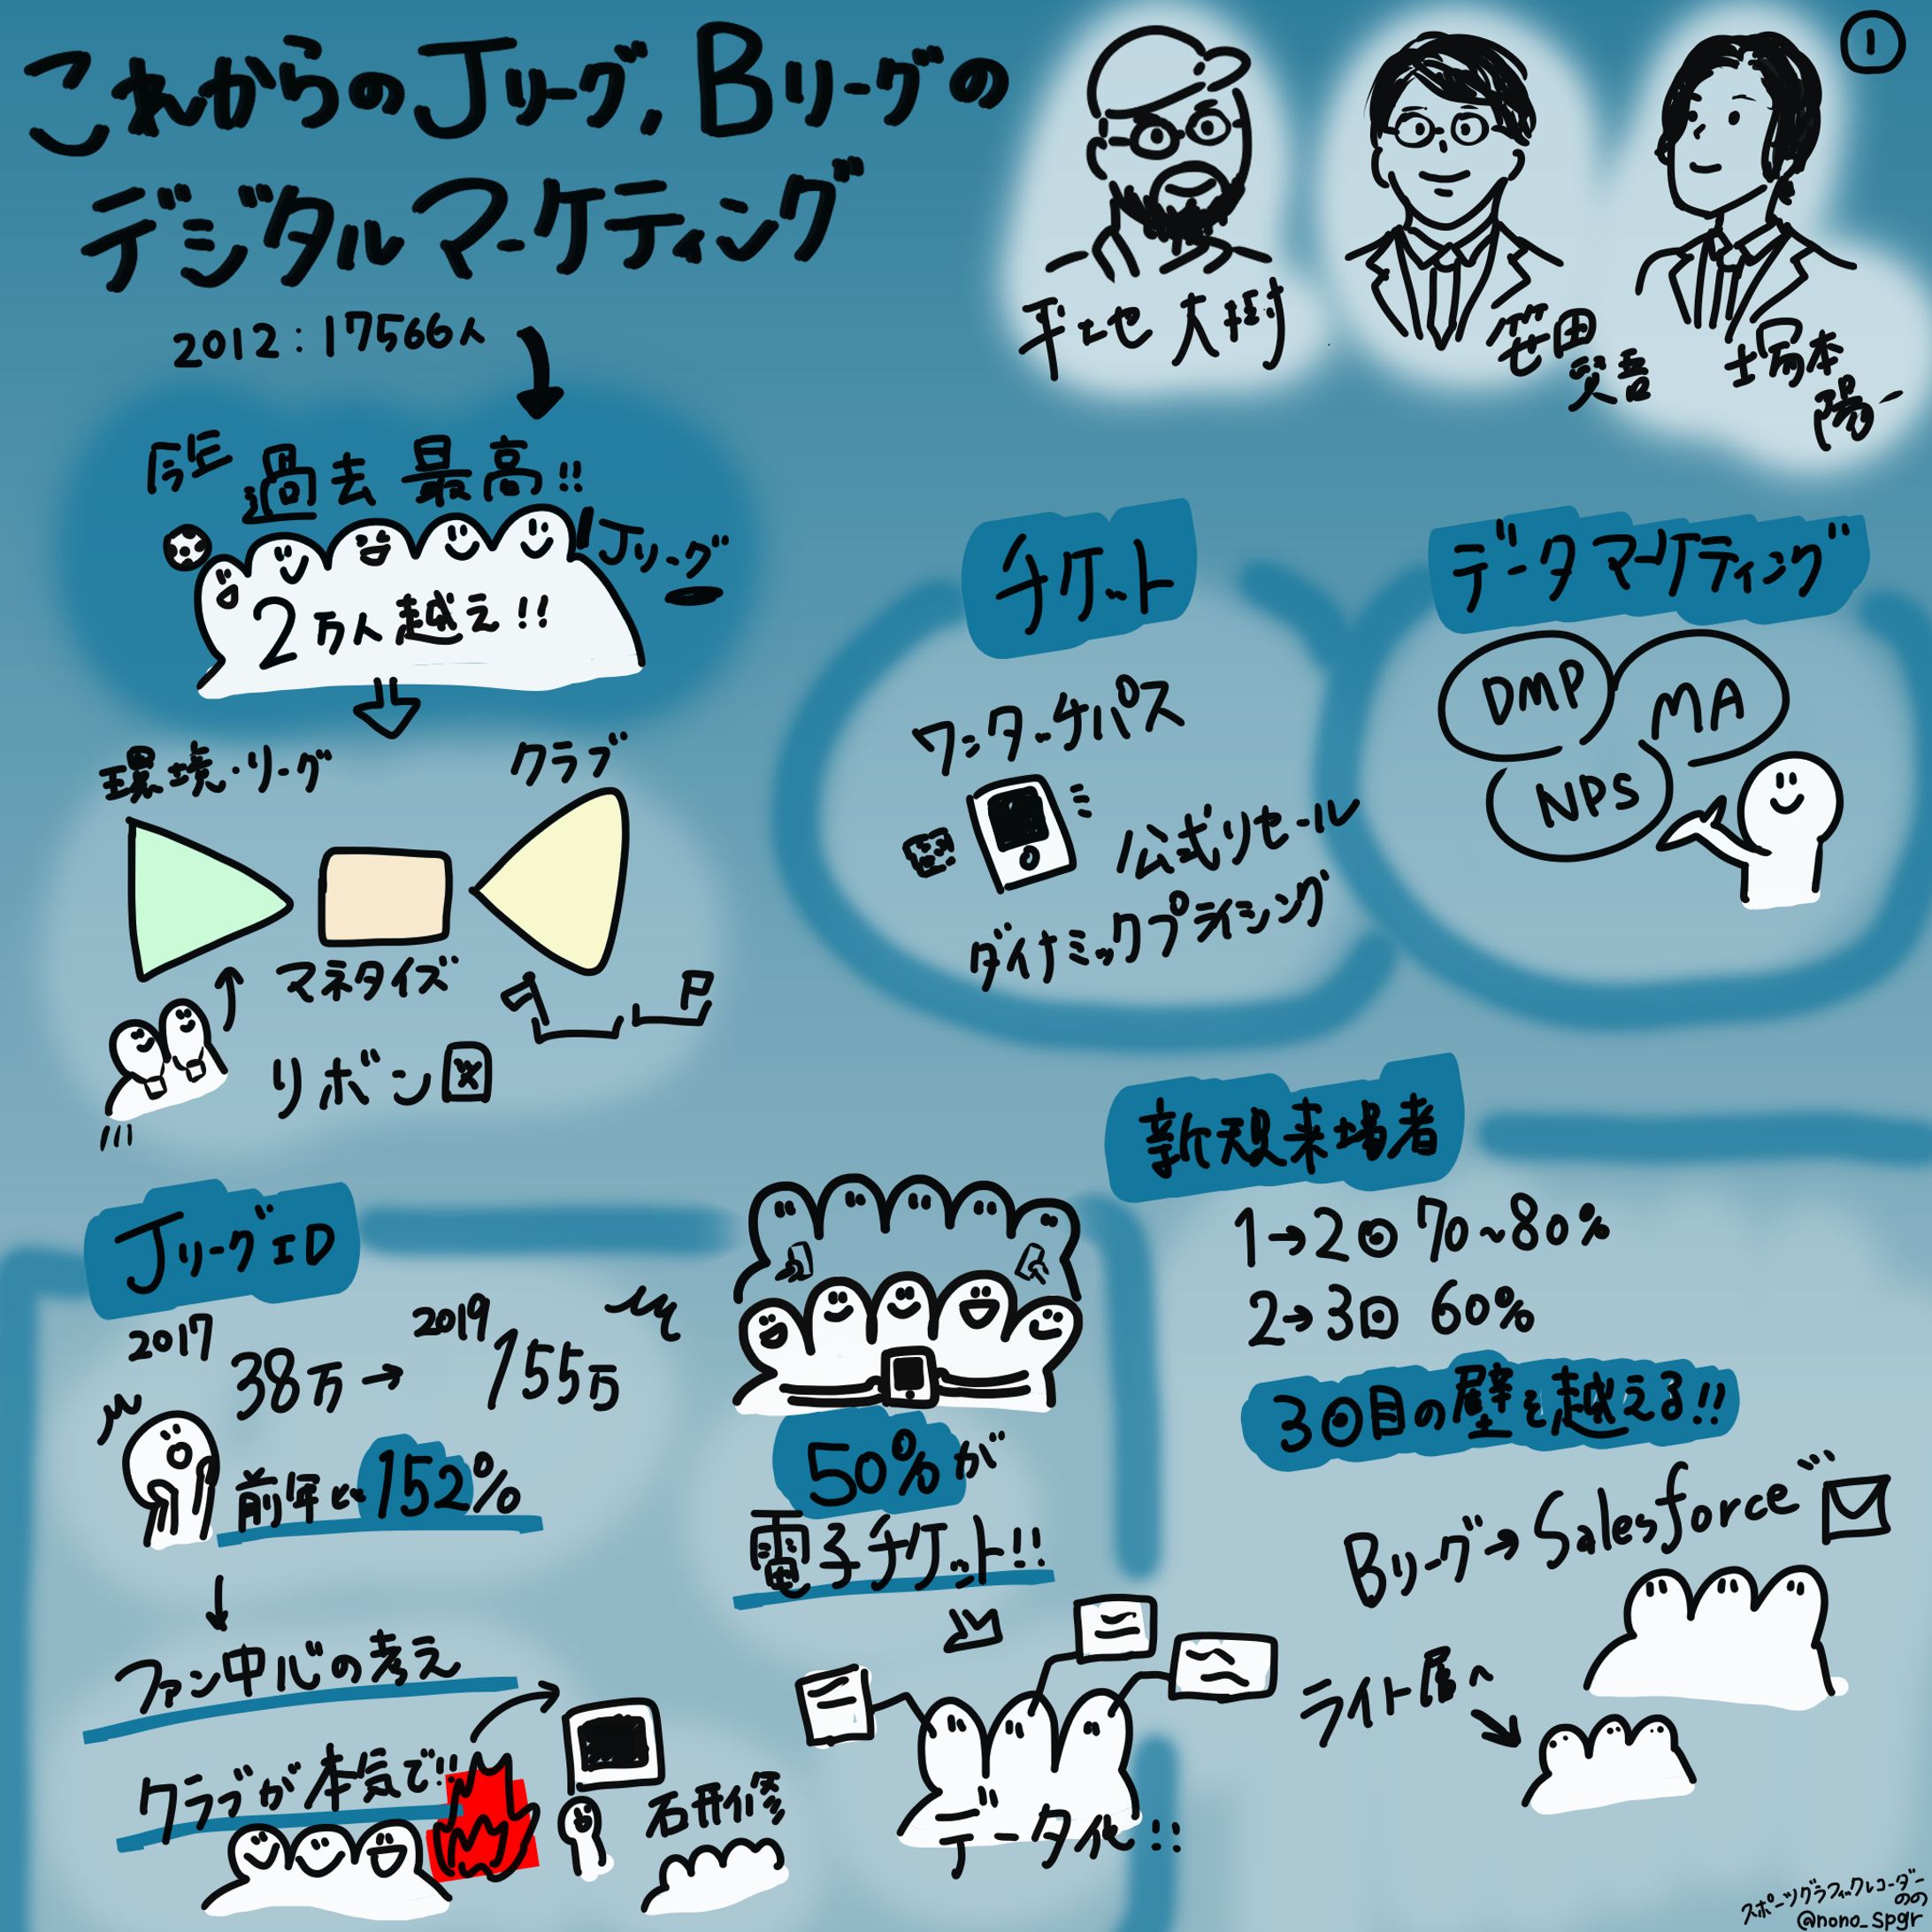 これからのJリーグ,Bリーグの
デジタルマーケティング
①
平地 大樹
笹田
賢吾
塚本
陽一
2012:17566人
今年
過去最高!!
Jリーグ
2万人越え!!
環境・リーグ
クラブ
マネタイズ
リボン図
チケット
ワンタッチパス
公式リセール
ダイナミックプライシング
データマーケティング
DMP
MA
NPS
JリーグID
2017
2019
38万→155万
前年比152%
ファン中心の考え
クラブが本気で!!
研修
50%が
電子チケット!!
データ化!!
新規来場者
1→2回 70~80%
2→3回 60%
3回目の壁を越える!!
Bリーグ→Salesforce
ライト層へ
スポーツグラフィックレコーダー
のの
@nono_spgr